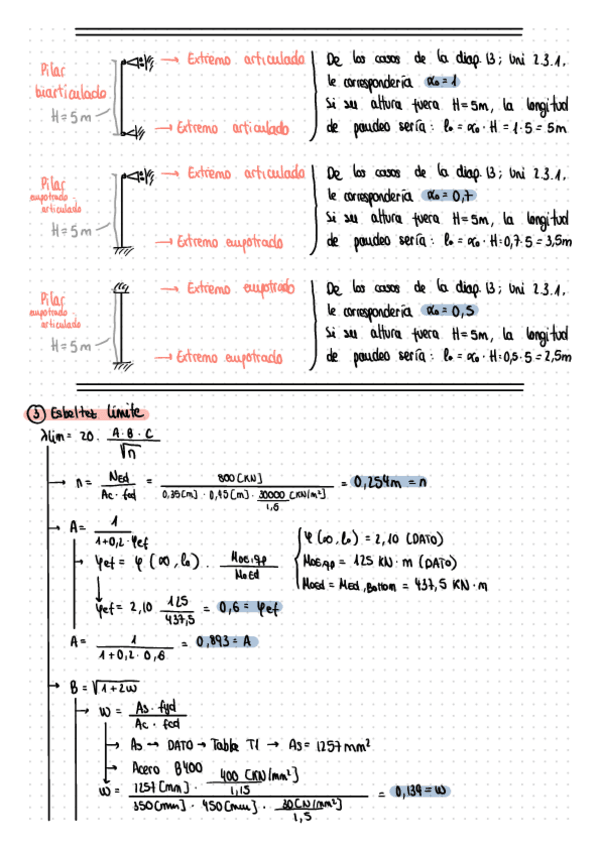 Pilar biarticulado H=5m
→ Extremo articulado
→ Extremo articulado
De los casos de la diap. 13; Uni 2.3.1.
le correspondería α₀ = 1
Si su altura fuera H=5m, la longitud
de pandeo sería: l₀ = α₀ · H = 1·5 = 5m
Pilar empotrado articulado H=5m
→ Extremo articulado
→ Extremo empotrado
De los casos de la diap. 13; Uni 2.3.1.
le correspondería α₀ = 0,7
Si su altura fuera H=5m, la longitud
de pandeo sería: l₀ = α₀ · H = 0,7·5 = 3,5m
Pilar empotrado articulado H=5m
→ Extremo empotrado
→ Extremo empotrado
De los casos de la diap. 13; Uni 2.3.1.
le correspondería α₀ = 0,5
Si su altura fuera H=5m, la longitud
de pandeo sería: l₀ = α₀ · H = 0,5·5 = 2,5m
③ Esbeltez límite
λlim = 20 · A·B·C / √n
→ n = NEd / Ac · fcd = 800 [KN] / 0,35[m] · 0,45[m] · 30000 [KN/m²] / 1,5 = 0,254m = n
→ A = 1 / 1+0,2·φef
→ φef = φ(∞,l₀) · M0E,qp / M0Ed
φ(∞,l₀) = 2,10 (DATO)
M0E,qp = 125 KN·m (DATO)
M0Ed = MEd,Bottom = 437,5 KN·m
φef = 2,10 · 125 / 437,5 = 0,6 = φef
A = 1 / 1+0,2·0,6 = 0,893 = A
→ B = √1+2w
→ w = As · fyd / Ac · fcd
→ As → DATO → Tabla T1 → As = 1257 mm²
→ Acero B400
w = 1257 [mm] · 400 [KN/mm²] / 1,15 / 350[mm] · 450[mm] · 30[N/mm²] / 1,5 = 0,139 = w